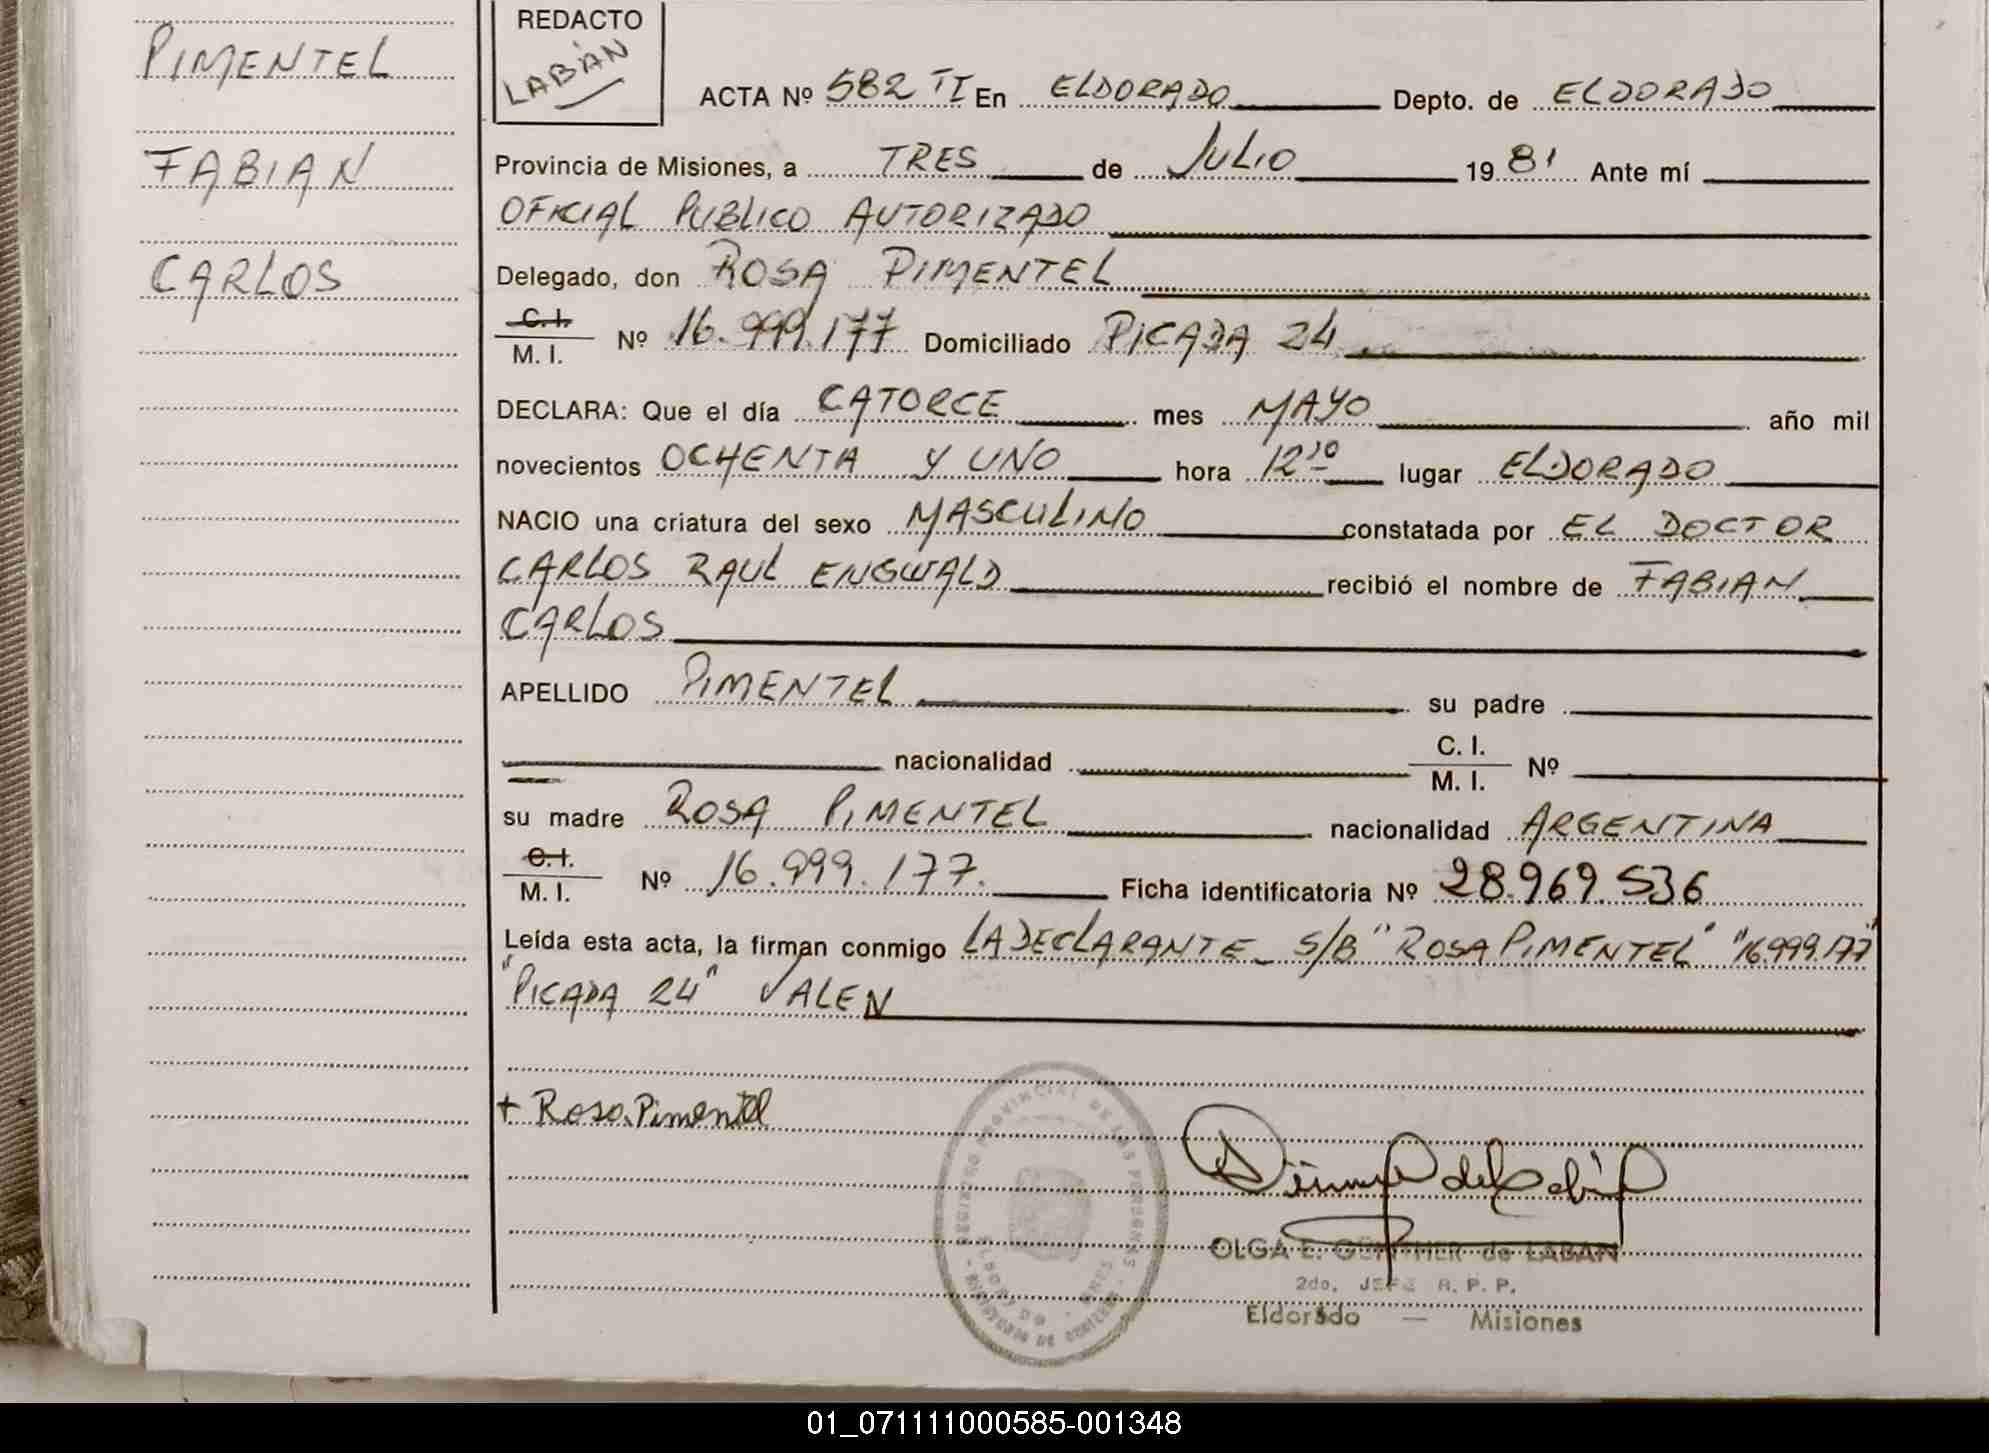 PIMENTEL
FABIAN
CARLOS
REDACTO
LABÁN
ACTA Nº 582 II En ELDORADO Depto. de ELDORADO
Provincia de Misiones, a TRES de JULIO 1981 Ante mí
OFICIAL PUBLICO AUTORIZADO
Delegado, don ROSA PIMENTEL
C. I.
M. I. Nº 16.999.177 Domiciliado PICADA 24
DECLARA: Que el día CATORCE mes MAYO año mil
novecientos OCHENTA Y UNO hora 12 lugar ELDORADO
NACIO una criatura del sexo MASCULINO constatada por EL DOCTOR
CARLOS RAUL ENGWALD recibió el nombre de FABIAN
CARLOS
APELLIDO PIMENTEL su padre
nacionalidad C. I. M. I. Nº
su madre ROSA PIMENTEL nacionalidad ARGENTINA
C. I.
M. I. Nº 16.999.177. Ficha identificatoria Nº 28.969.536
Leída esta acta, la firman conmigo LA DECLARANTE_ S/B "ROSA PIMENTEL" "16.999.177"
"PICADA 24" VALEN
+ Rosa Pimentel
OLGA E. GÜNTHER de LABAN
2do. JEFE R. P. P.
Eldorado — Misiones
01_071111000585-001348